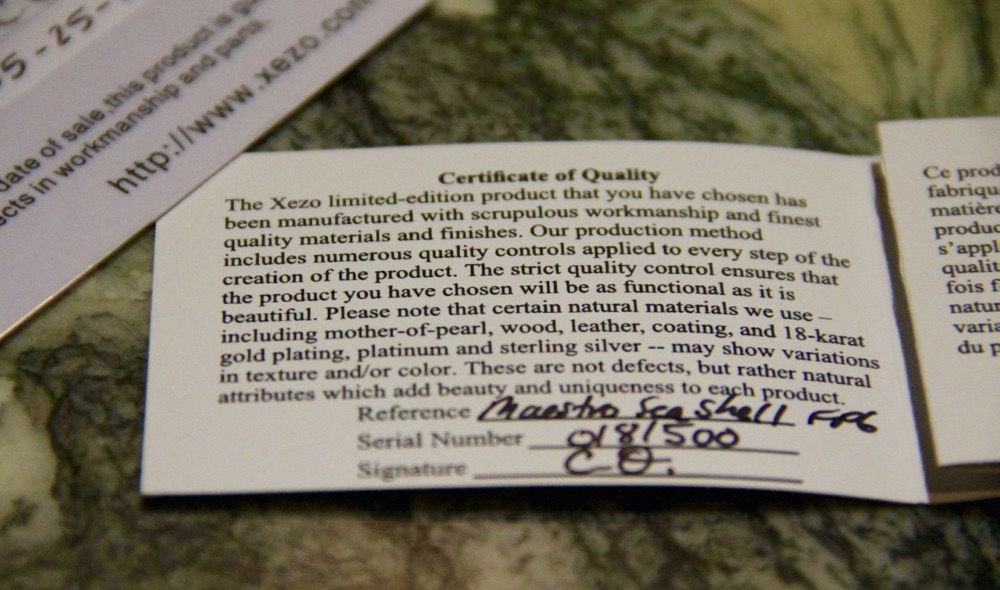 5-25-
date of sale, this product is
cts in workmanship and parts.
http://www.xezo.com
Certificate of Quality
The Xezo limited-edition product that you have chosen has
been manufactured with scrupulous workmanship and finest
quality materials and finishes. Our production method
includes numerous quality controls applied to every step of the
creation of the product. The strict quality control ensures that
the product you have chosen will be as functional as it is
beautiful. Please note that certain natural materials we use –
including mother-of-pearl, wood, leather, coating, and 18-karat
gold plating, platinum and sterling silver -- may show variations
in texture and/or color. These are not defects, but rather natural
attributes which add beauty and uniqueness to each product.
Reference Maestro Sea Shell FP6
Serial Number 018/500
Signature C O.
Ce prod
fabriqu
matière
produc
s'appl
qualit
fois f
natur
varia
du p